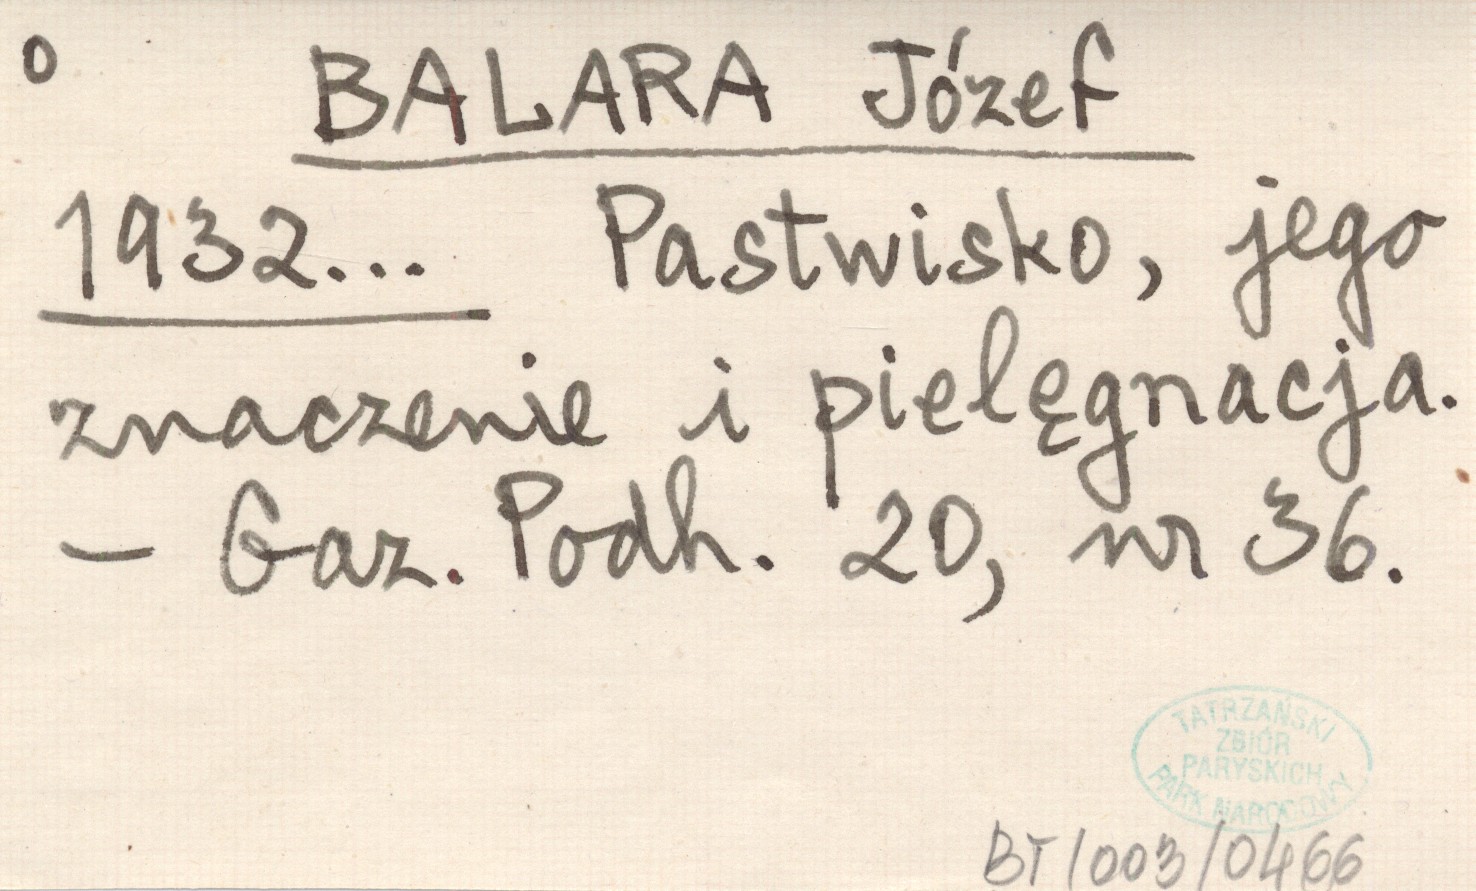 o BALARA Józef
1932... Pastwisko, jego
znaczenie i pielęgnacja.
– Gaz. Podh. 20, nr 36.
TATRZAŃSKI
ZBIÓR
PARYSKICH
PARK NARODOWY
BT/003/0466